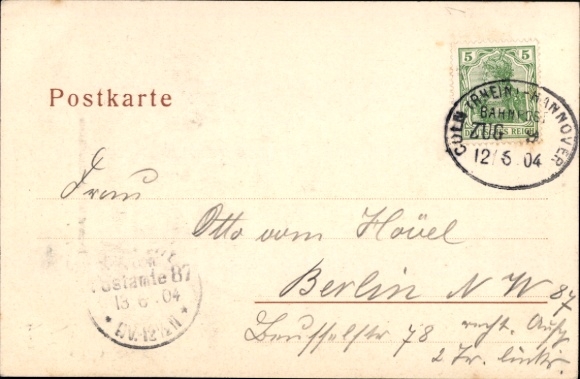 Postkarte
5 5
DEUTSCHES REICH
CÖLN (RHEIN)-HANNOVER
BAHNPOST
ZUG 9
12/5 04
Frau
Otto vom Hövel
Berlin N W 87
Beusselstr 78 recht. Aufg
2 Tr. links.
Postamte 87
13 5 04